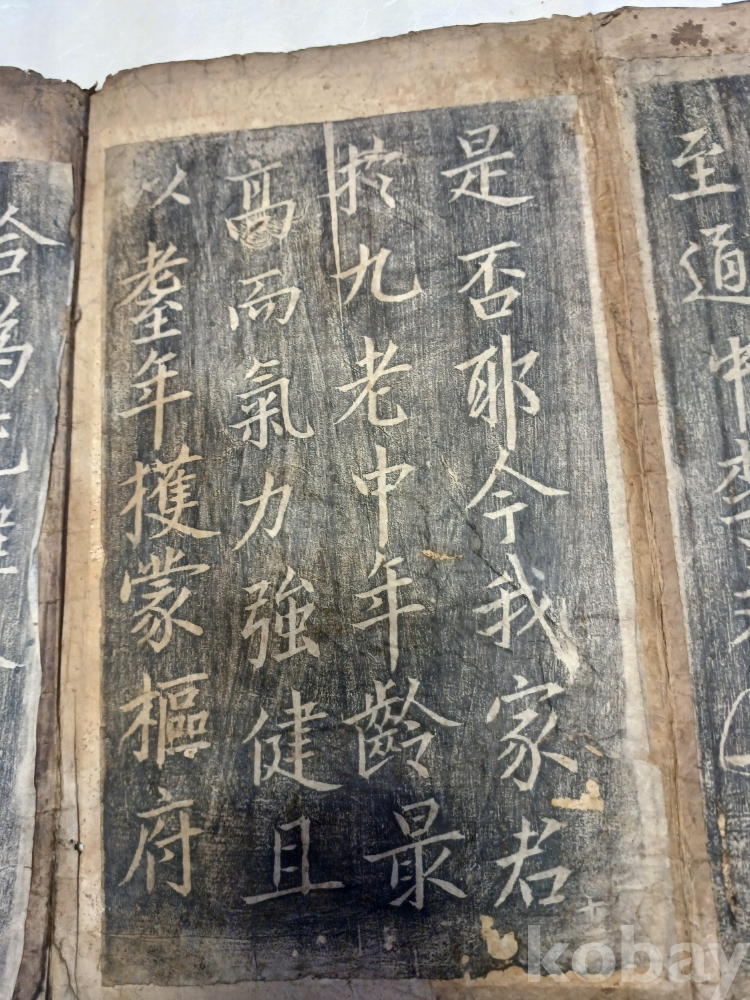 至通中
是否耶今我家君
於九老中年齡最
高而氣力強健且
以耋年獲蒙樞府
為
十
kobay